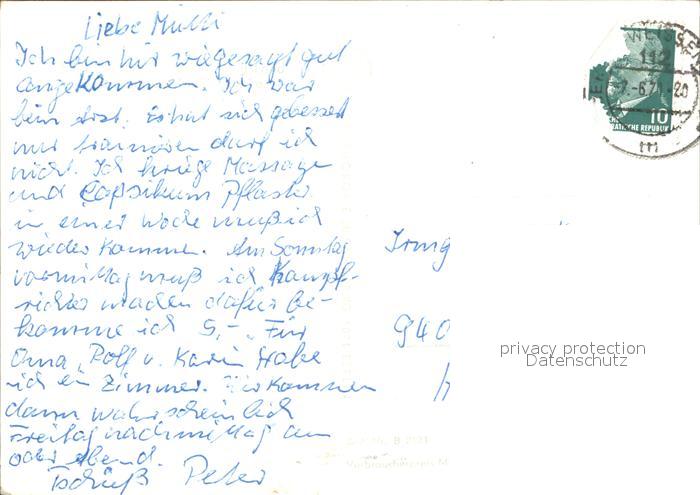 Liebe Mutti
Ich bin hir wiegesagt gut
angekommen. Ich war
beim Arzt. Es hat sich gebessert
nur trainieren darf ich
nicht. Ich kriege Massage
und Capsikum Pflaster
in einer Woche muß ich
wieder kommen. Am Sonntag
vormittag muß ich Kampf-
richter machen dafür be-
komme ich 5,- „Für
Oma, Rolf u. Karin habe
ich ein Zimmer. Sie kommen
dann wahrscheinlich
Freitag nachmittag an
oder Abend.
Tschüß Peter
Irmg
940
112
7.-6.71.-20
10
ATISCHE REPUBLIK
privacy protection
Datenschutz
B 2121
Verbraucherpreis M